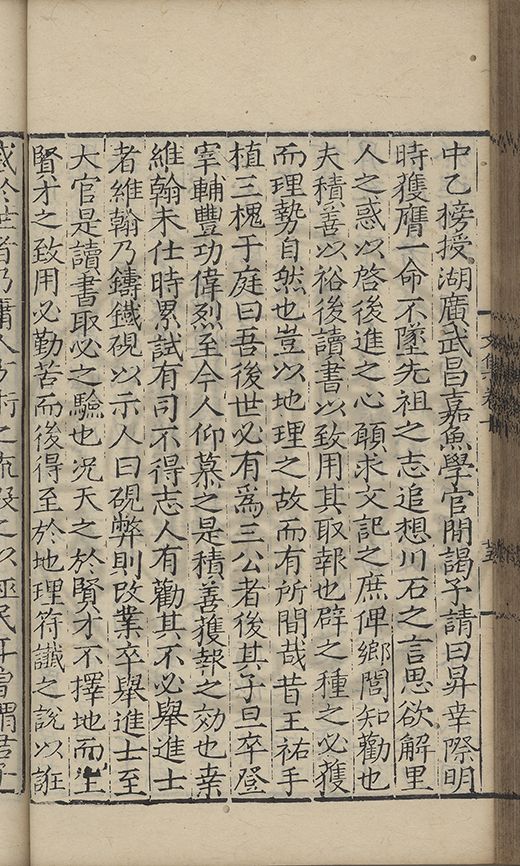 中乙榜授湖廣武昌嘉魚學官開謁予請曰昇幸際明
時獲膺一命不墜先祖之志追想川石之言思欲解里
人之惑以啓後進之心願求文記之庶俾鄉閭知勸也
夫積善以裕後讀書以致用其取報也辟之種之必獲
而理勢自然也豈以地理之故而有所間哉昔王祐手
植三槐于庭曰吾後世必有爲三公者後其子旦卒登
宰輔豐功偉烈至今人仰慕之是積善獲報之効也桒
維翰未仕時累試有司不得志人有勸其不必舉進士
者維翰乃鑄鐵硯以示人曰硯弊則改業卒舉進士至
大官是讀書取必之驗也况天之於賢才不擇地而生
賢才之致用必勤苦而後得至於地理符讖之說以誑